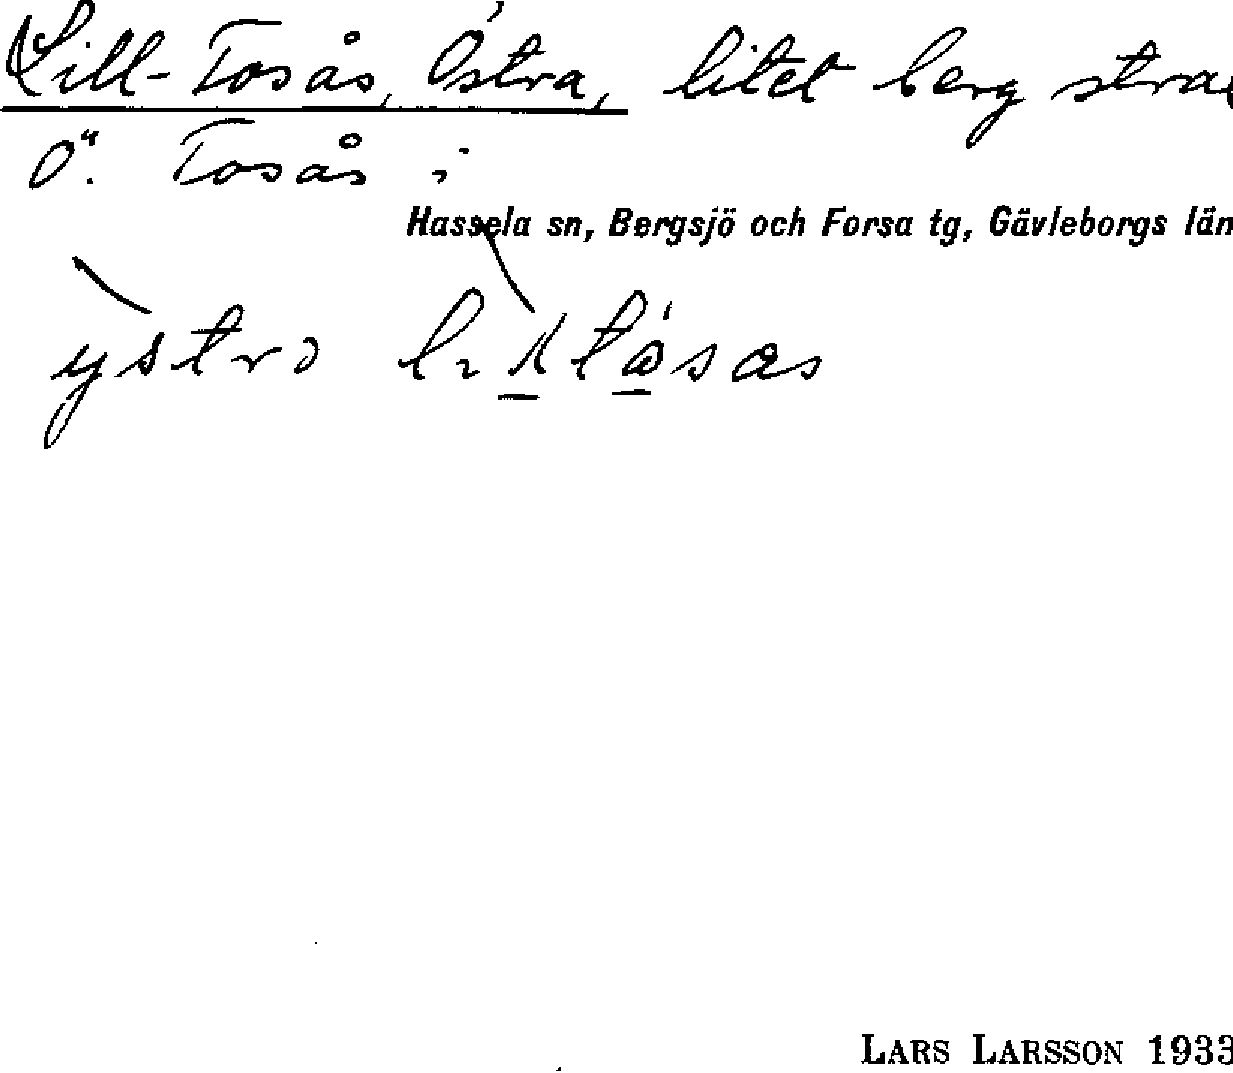 Lill-Tosås, Östra, litet berg stra
Ö. Tosås i
Hassela sn, Bergsjö och Forsa tg, Gävleborgs län
LARS LARSSON 1933